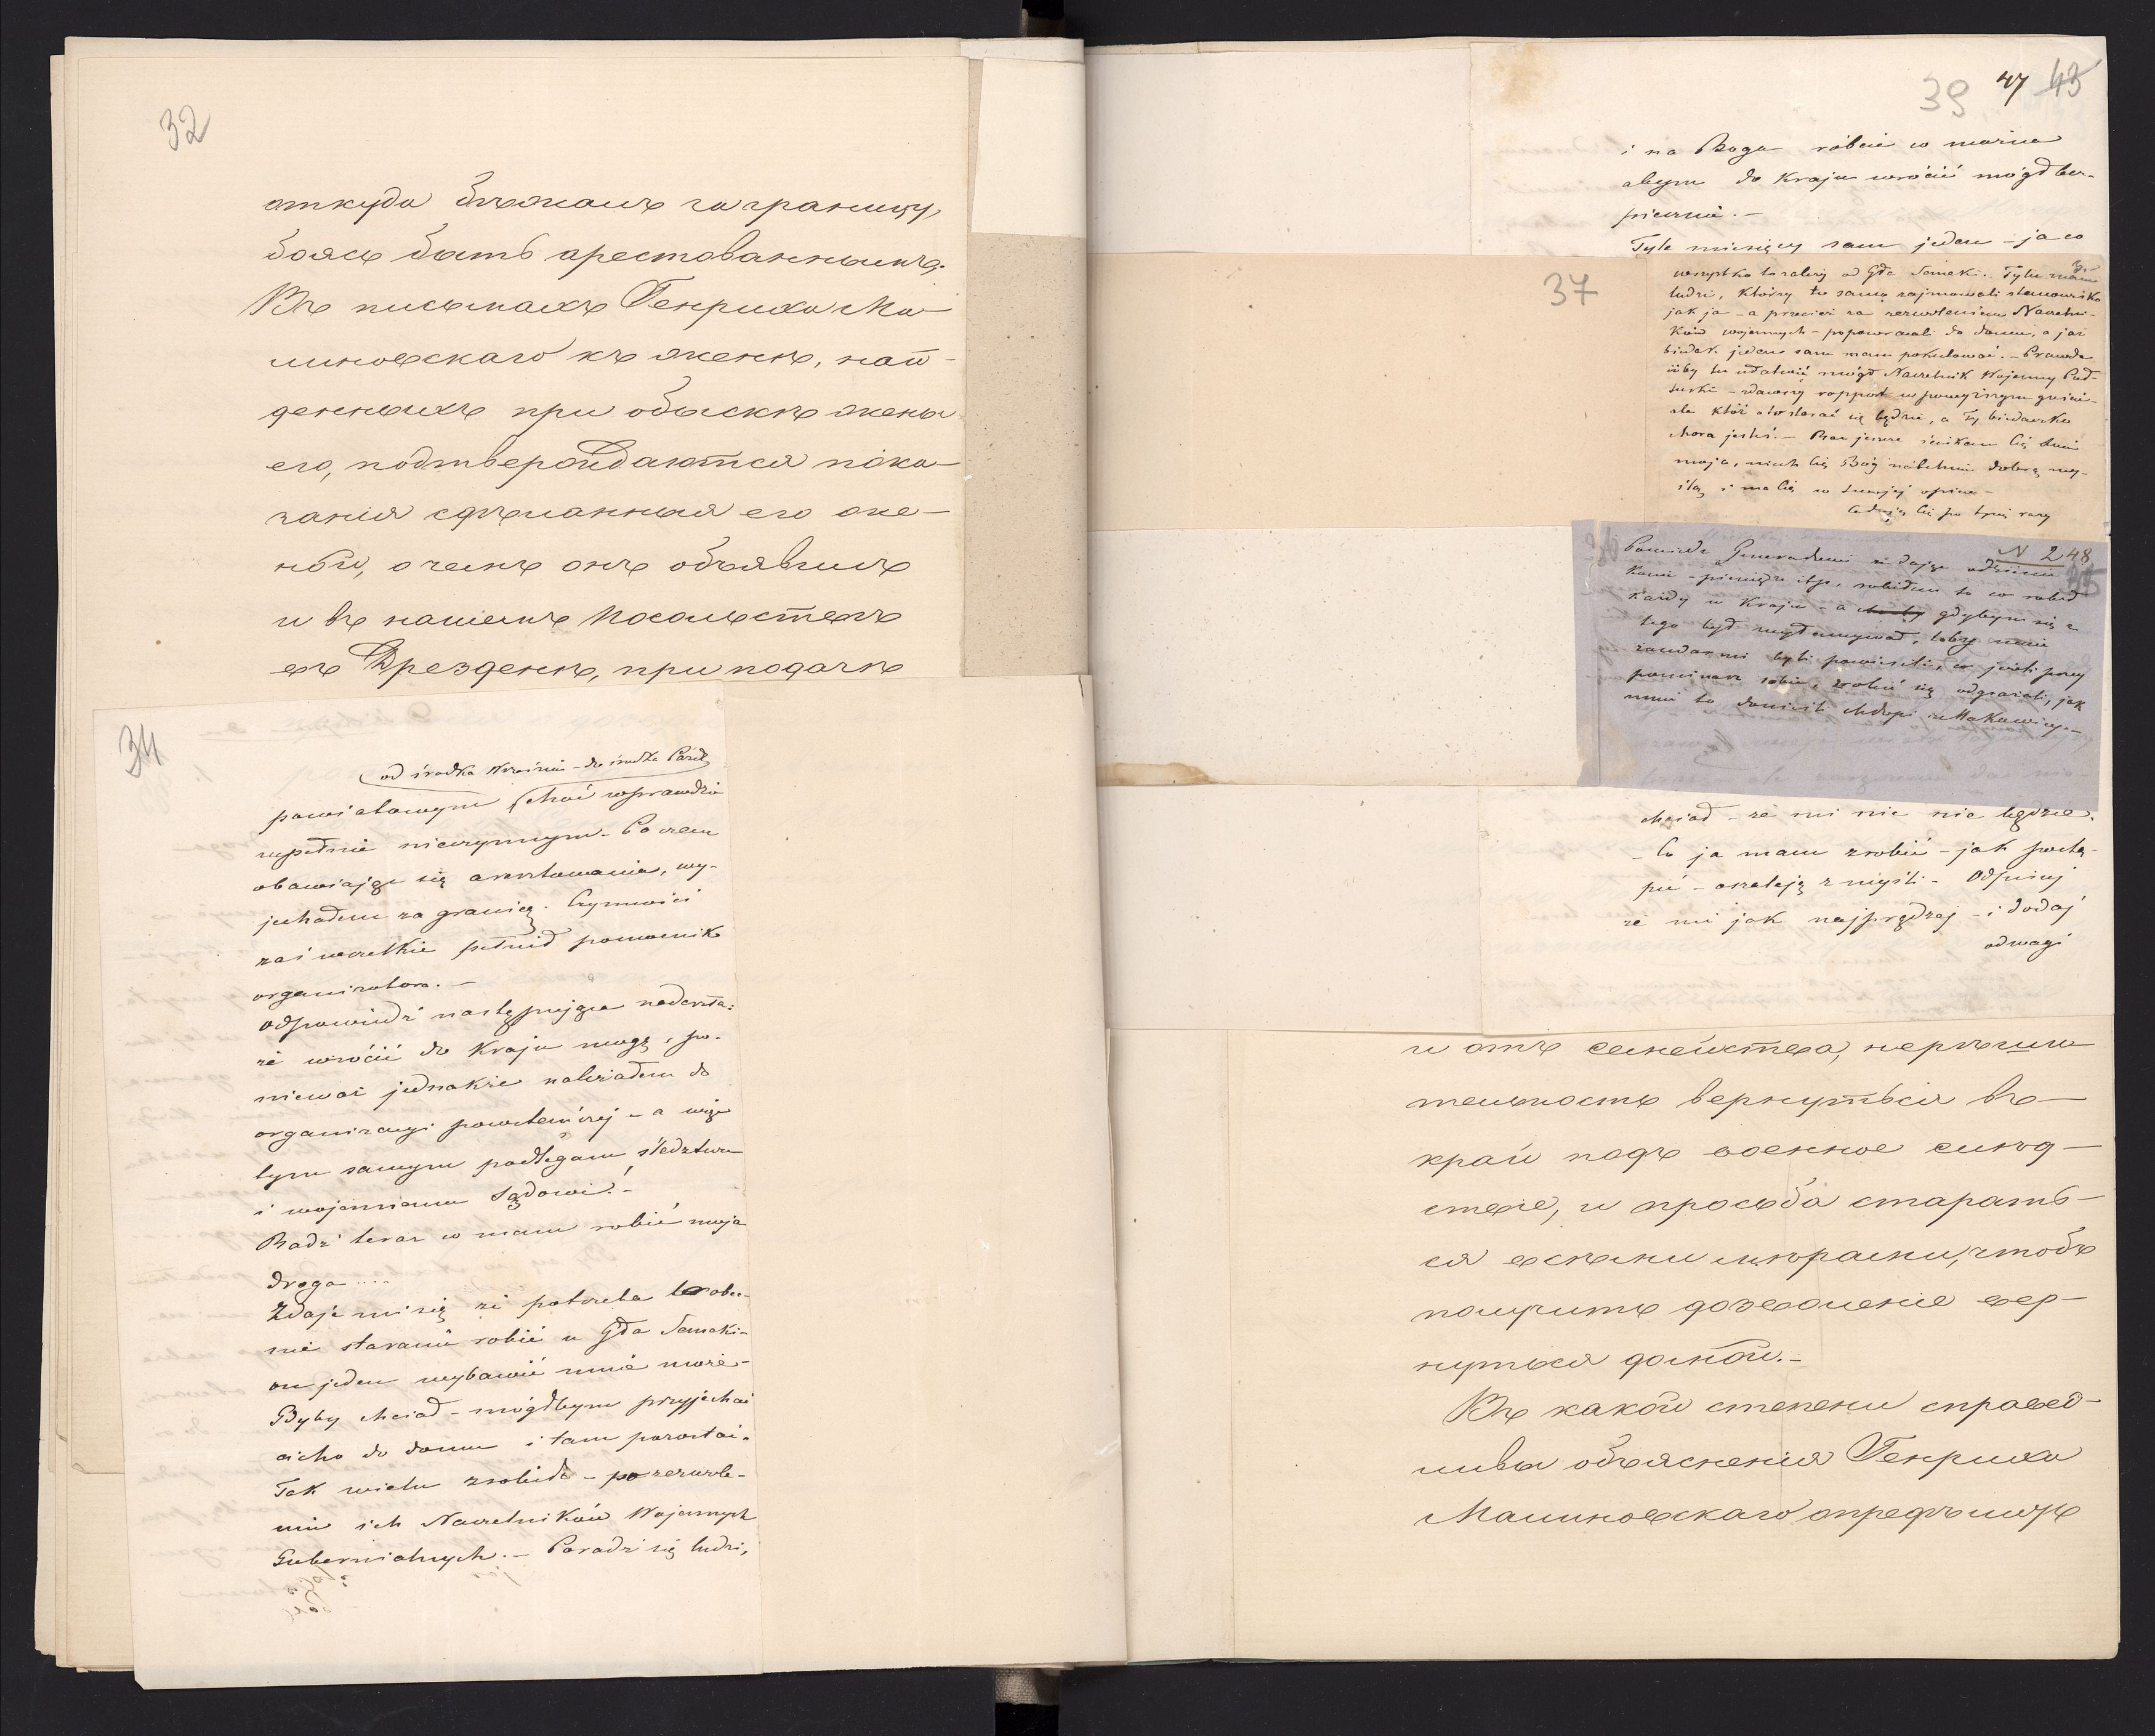 32
откуда бѣжалъ за границу,
боясь быть арестованнымъ.
Въ письмахъ Генриха Ма-
линовскаго къ женѣ, най-
денныхъ при обыскѣ жены
его, подтверждаются пока-
занія сдѣланныя его же-
ной, о чемъ онъ объявилъ
и въ нашемъ посольствѣ
въ Дрезденѣ, при подачѣ
34
od środka Września - do środka Paźd
powiatowym choć wprawdzie
zupełnie nieczynnym. Po czem
obawiając się aresztowania, wy-
jechałem za granicę. Czynności
zaś wszelkie pełnił pomocnik
organizatora. -
Odpowiedź następująca nadeszła:
że wrócić do Kraju mogę, po-
nieważ jednakże należałem do
organizacyi powstańczej - a więc
tym samym podlegam śledztwu
i wojennemu Sądowi! -
Radź teraz co mam robić moja
droga ....
Zdaje mi się że potrzeba obec-
nie starania robić u Gła Semeki -
on jeden wybawić mnie może -
Gdyby chciał - mógłbym przyjechać
cicho do domu i tam pozostać.
Tak wielu zrobiło - po zezwole-
niu ich Naczelników Wojennych
Gubernialnych. - Poradź się ludzi,
39 47 43
i na Boga róbcie co można
abym do Kraju wrócić mógł bez-
piecznie. -
Tyle miesięcy sam jeden - ja co
37
wszystko to zależy od Gła Semeki. Tylu znam
ludzi, którzy to samo zajmowali stanowisko
jak ja - a przecież za zezwoleniem Naczelni-
ków wojennych - popowracali do domu, a ja
biedak jeden sam mam pokutować. - Prawda
iżby tu ułatwić mógł Naczelnik Wojenny Puł-
tuski - zdawszy rapport w powyższym guście -
ale któż o to starać się będzie, a Ty biedaczko
chora jesteś. - Raz jeszcze ściskam Cię duszo
moja, niech Cię Bóg natchnie dobrą my-
ślą i ma Cię w swojej opiece -
Całuję Cię po tysiąc razy
N 2 48
Powiedz Generałowi że dając
- pieniądze itp. robiłem to co robił
każdy w Kraju - a gdybym się z
tego był wyłamywał, toby mnie
żandarmi byli powiesili, co jeśli przy-
pominasz sobie, zrobić się odgrażali, jak
mnie to donieśli chłopi z Makowicy -
chciał - że mi nic nie będzie.
- Co ja mam zrobić - jak postą-
pić - oszaleję z myśli - Odpisuj
że mi jak najprędzej - i dodaj
odwagi
и отъ семейства, нерѣши-
тельность вернуться въ
край подъ военное слѣд-
ствіе, и просьба старать-
ся всѣми мѣрами, чтобъ
получить дозволеніе вер-
нуться домой. -
Въ какой степени справед-
ливы объясненія Генриха
Малиновскаго опредѣлить